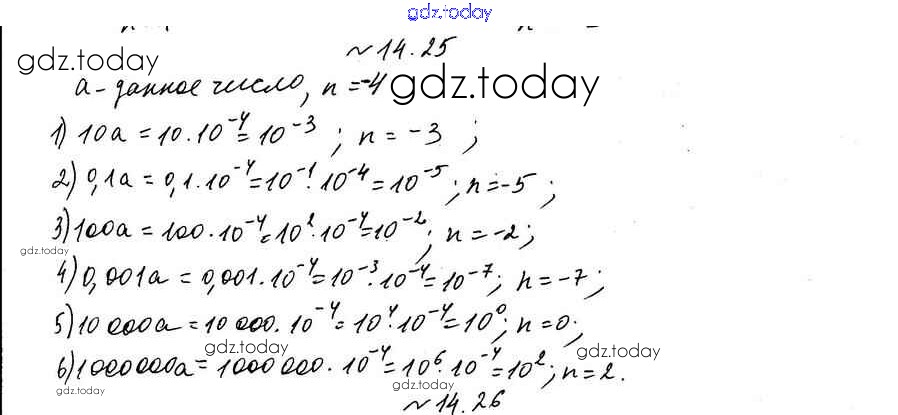 gdz.today
№ 14.25
gdz.today
а - данное число, n = -4 gdz.today
1) 10a = 10 · 10⁻⁴ = 10⁻³ ; n = -3 ;
2) 0,1a = 0,1 · 10⁻⁴ = 10⁻¹ · 10⁻⁴ = 10⁻⁵ ; n = -5 ;
3) 100a = 100 · 10⁻⁴ = 10² · 10⁻⁴ = 10⁻² ; n = -2 ;
gdz.today
4) 0,001a = 0,001 · 10⁻⁴ = 10⁻³ · 10⁻⁴ = 10⁻⁷ ; n = -7 ;
5) 10 000a = 10 000 · 10⁻⁴ = 10⁴ · 10⁻⁴ = 10⁰ ; n = 0 ;
gdz.today gdz.today
6) 1000 000a = 1000 000 · 10⁻⁴ = 10⁶ · 10⁻⁴ = 10² ; n = 2.
gdz.today gdz.today
№ 14.26